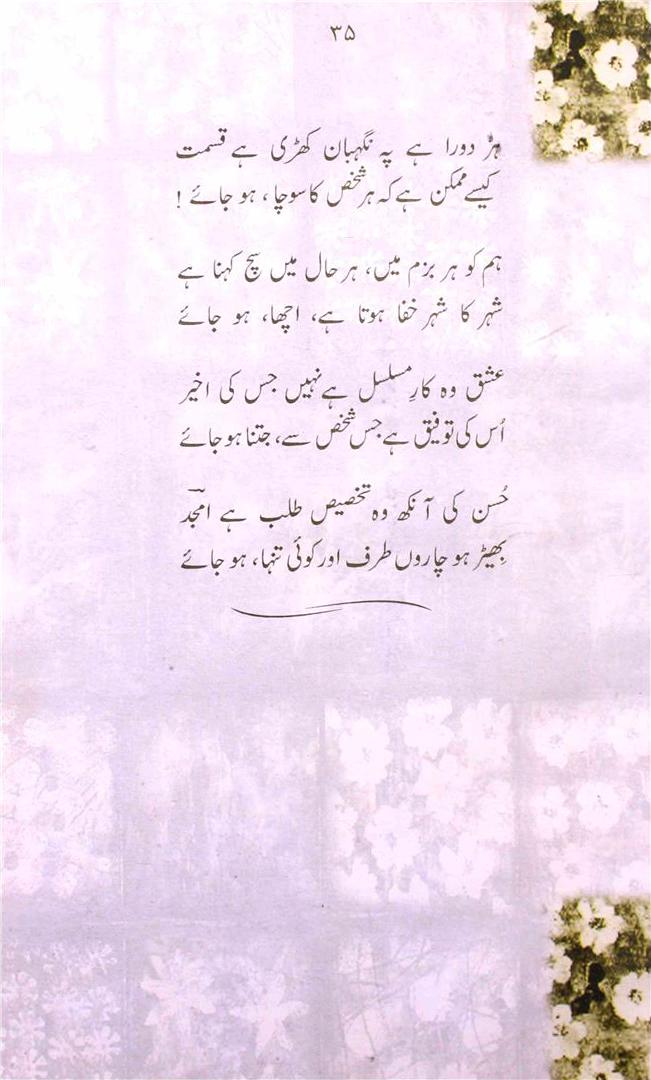 ۳۵
ہر دورا ہے پہ نگہبان کھڑی ہے قسمت
کیسے ممکن ہے کہ ہر شخص کا سوچا، ہو جائے !
ہم کو ہر بزم میں، ہر حال میں سچ کہنا ہے
شہر کا شہر خفا ہوتا ہے، اچھا، ہو جائے
عشق وہ کارِ مسلسل ہے نہیں جس کی اخیر
اُس کی توفیق ہے جس شخص سے، جتنا ہو جائے
حُسن کی آنکھ وہ تخصیص طلب ہے امجدؔ
بِھیڑ ہو چاروں طرف اور کوئی تنہا، ہو جائے